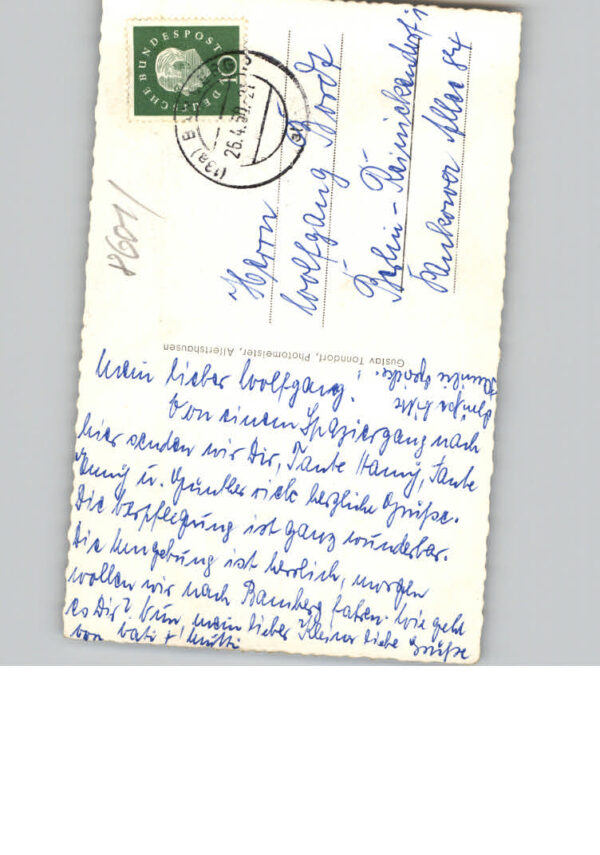 DEUTSCHE BUNDESPOST
10
(13a) BA
26.4.60.-21
Herrn
Wolfgang
Berlin-Reinickendorf 1
Pankower Allee 84
8601/
Gustav Tonndorf, Photomeister, Allertshausen
Mein lieber Wolfgang!
Von einem Spaziergang nach
hier senden wir Dir, Tante Hanny, Tante
Änny u. Günther viele herzliche Grüße.
Die Verpflegung ist ganz wunderbar.
Die Umgebung ist herrlich, morgen
wollen wir nach Bamberg fahren. Wie geht
es Dir? Nun, mein lieber Kleiner liebe Grüße
von Vati + Mutti
Grüße bitte
Familie